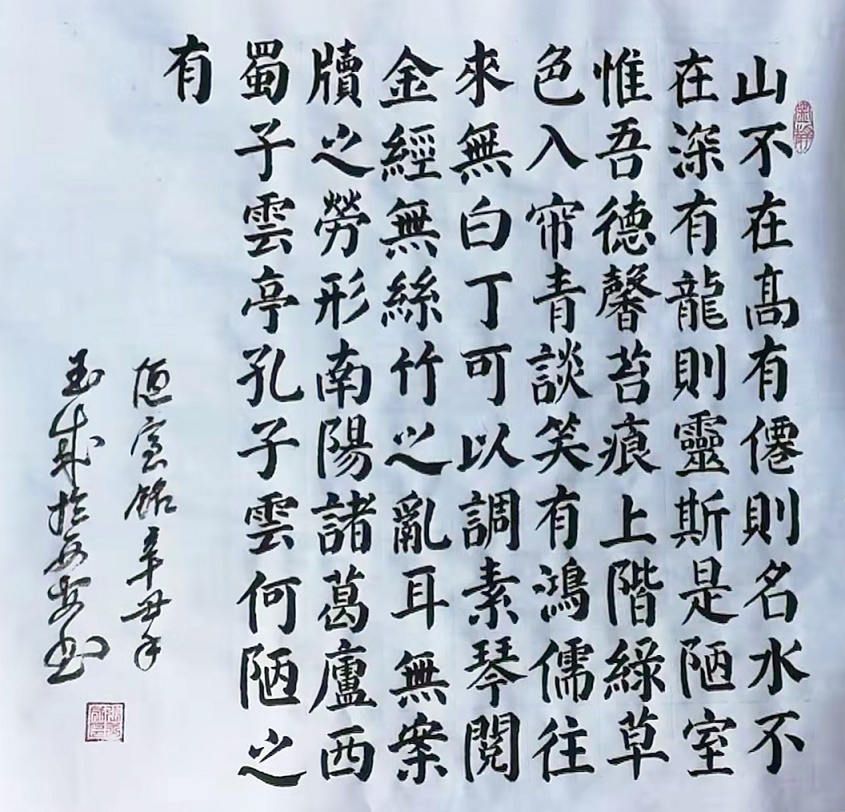 山不在髙有僊則名水不
在深有龍則靈斯是陋室
惟吾德馨苔痕上階綠草
色入帘青談笑有鴻儒往
來無白丁可以調素琴閱
金經無絲竹之亂耳無案
牘之勞形南陽諸葛廬西
蜀子雲亭孔子雲何陋之
有
陋室銘辛丑年
玉成於西安书